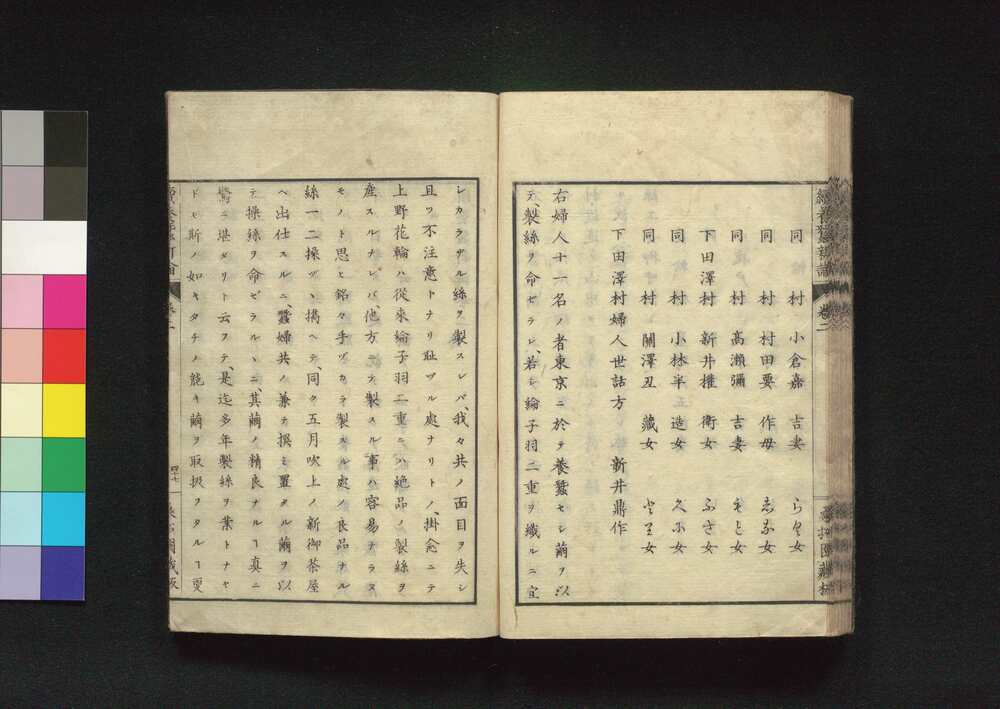 同村 小倉嘉吉妻 らく女
同村 村田要作母 志な女
同村 高瀬彌吉妻 もと女
下田澤村 新井權衛女 ふさ女
同村 小林半造女 久に女
同村 關澤丑藏女 とり女
下田澤村婦人世話方 新井鼎作
右婦人十一名ノ者東京ニ於テ養蠶セシ繭ヲ以
テ、製絲ヲ命ゼラレ、若シ綸子羽二重ヲ織ルニ宜
シカラザル絲ヲ製スレバ、我々共ノ面目ヲ失シ
且ツ不注意トナリ耻ヅル處ナリトノ、掛念ニテ
上野花輪ハ從來綸子羽二重ニハ絶品ノ製絲ヲ
産スルナレバ、他方ニテ製スル事ハ容易ナラヌ
モノト思ヒ銘々手ヅカラ製スル処ノ良品ナル
絲一二操ヅヽ携ヘテ、同ク五月吹上ノ新御茶屋
ヘ出仕スルニ、蠶婦共ノ兼テ撰ミ置タル繭ヲ以
テ操絲ヲ命ゼラルヽニ、其繭ノ精良ナルヿ真ニ
驚ニ堪タリト云ヲテ、是迄多年製絲ヲ業トナセ
ドモ斯ノ如キタチノ能キ繭ヲ取扱ヲタルヿ更
四十七